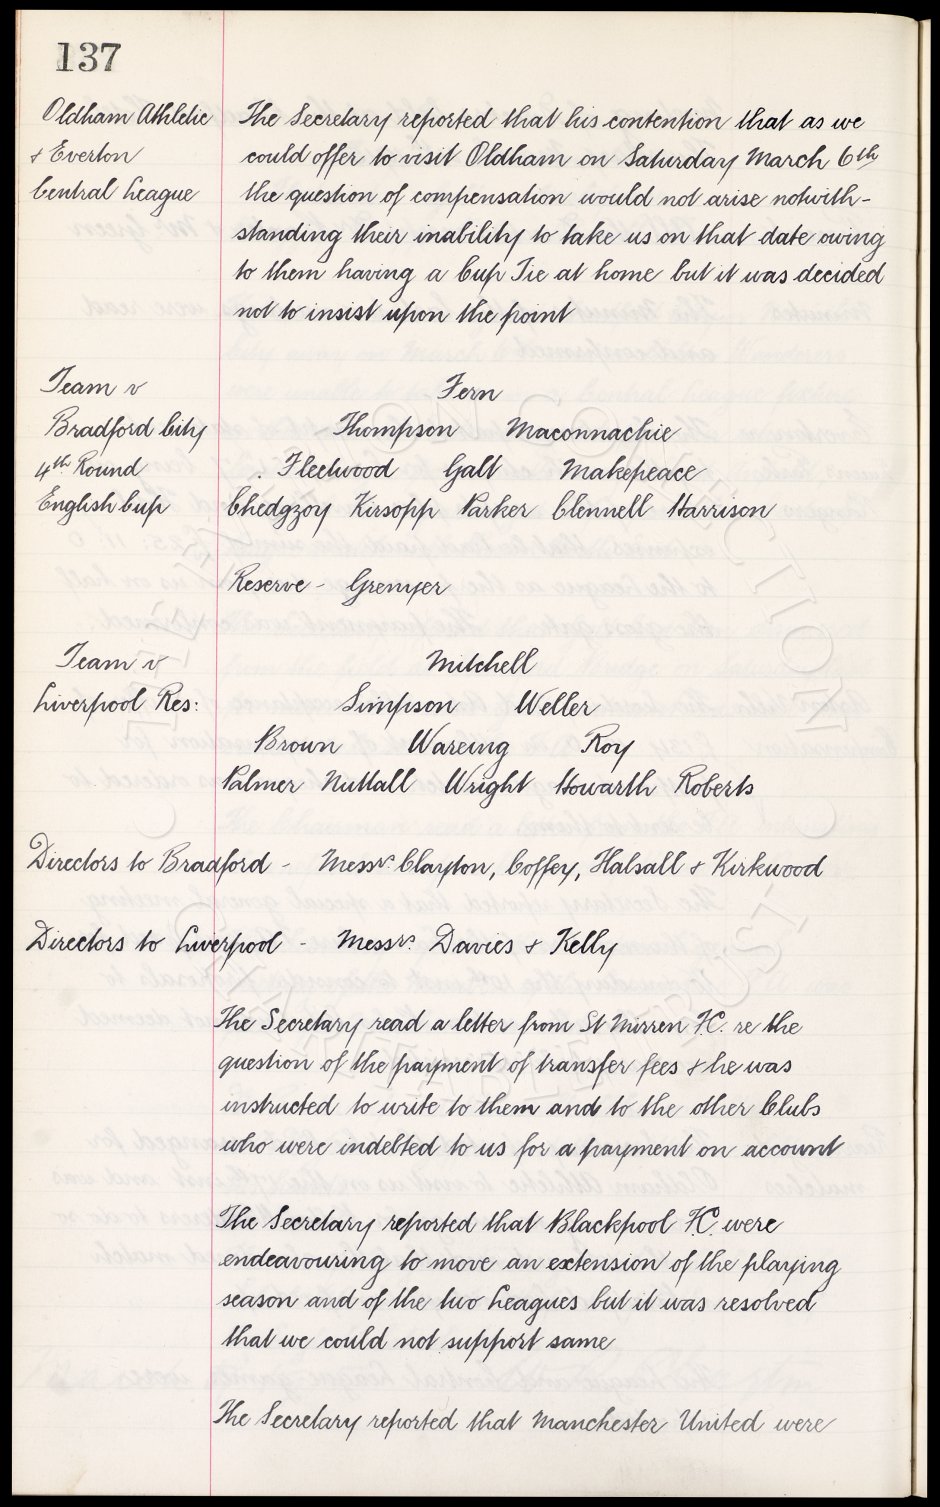 137
Oldham Athletic
& Everton
Central League
The Secretary reported that his contention that as we
could offer to visit Oldham on Saturday March 6th
the question of compensation would not arise notwith-
standing their inability to take us on that date owing
to them having a Cup Tie at home but it was decided
not to insist upon the point
Team v
Bradford City
4th Round
English Cup
Fern
Thompson Maconnachie
Fleetwood Galt Makepeace
Chedgzoy Kirsopp Parker Clennell Harrison
Reserve - Grenyer
Team v
Liverpool Res:
Mitchell
Simpson Weller
Brown Wareing Roy
Palmer Nuttall Wright Howarth Roberts
Directors to Bradford - Messrs Clayton, Coffey, Halsall & Kirkwood
Directors to Liverpool - Messrs. Davies & Kelly
The Secretary read a letter from St Mirren F.C. re the
question of the payment of transfer fees & he was
instructed to write to them and to the other Clubs
who were indebted to us for a payment on account
The Secretary reported that Blackpool F.C. were
endeavouring to move an extension of the playing
season and of the two Leagues but it was resolved
that we could not support same
The Secretary reported that Manchester United were